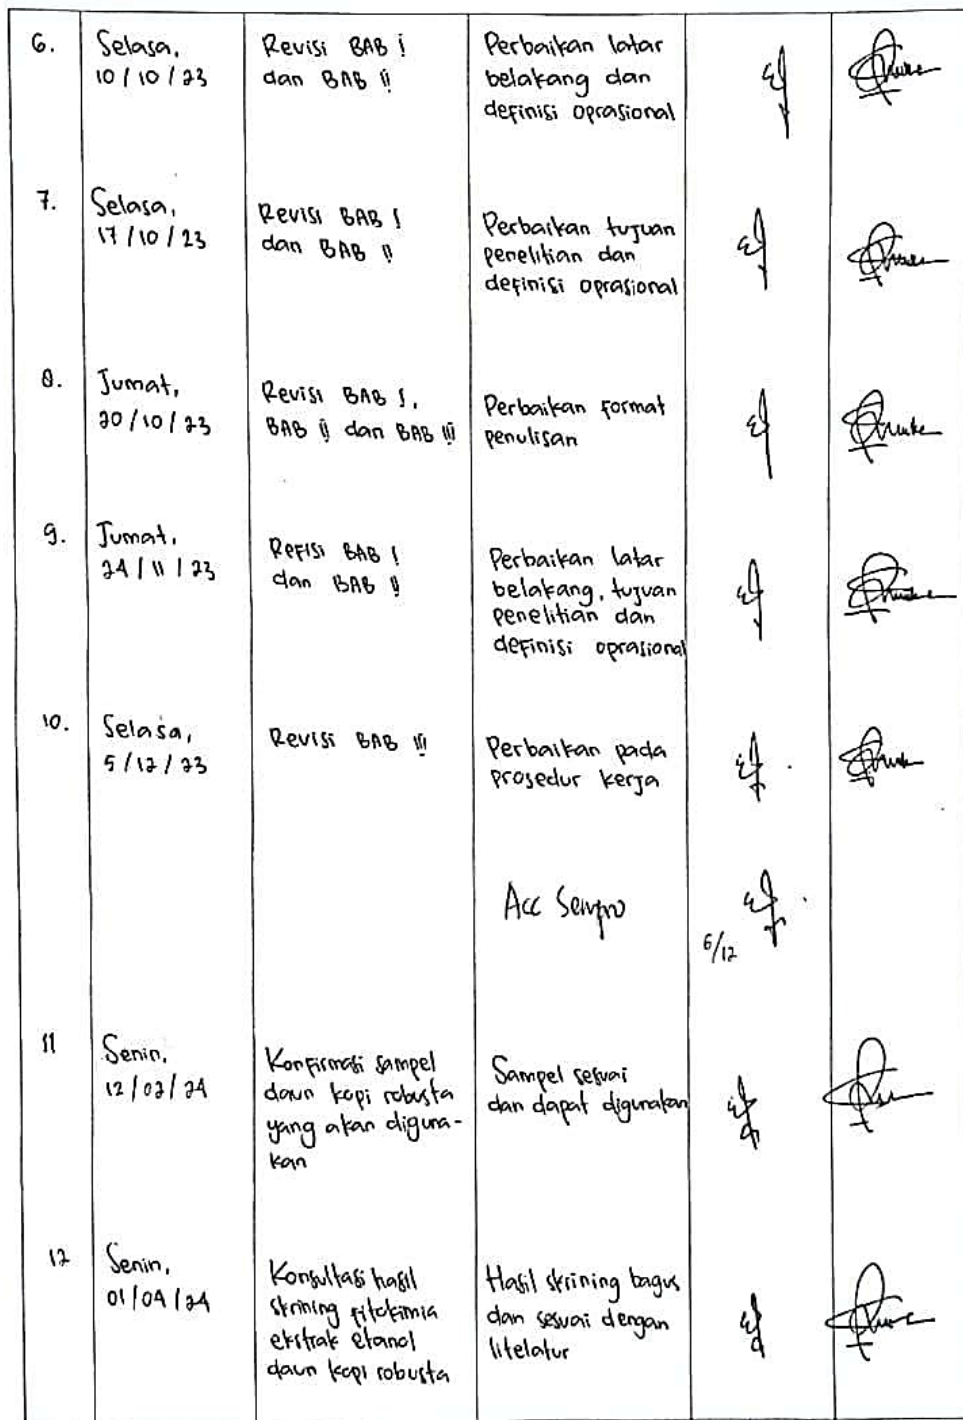 6.
Selasa,
10/10/23
Revisi BAB I
dan BAB II
Perbaikan latar
belakang dan
definisi oprasional
7.
Selasa,
17/10/23
Revisi BAB I
dan BAB II
Perbaikan tujuan
penelitian dan
definisi oprasional
8.
Jumat,
20/10/23
Revisi BAB I,
BAB II dan BAB III
Perbaikan format
penulisan
9.
Jumat,
24/11/23
Refisi BAB I
dan BAB II
Perbaikan latar
belakang, tujuan
penelitian dan
definisi oprasional
10.
Selasa,
5/12/23
Revisi BAB III
Perbaikan pada
prosedur kerja
Acc Sempro
6/12
11
Senin,
12/02/24
Konfirmasi sampel
daun kopi robusta
yang akan diguna-
kan
Sampel sesuai
dan dapat digunakan
12
Senin,
01/04/24
Konsultasi hasil
skrining fitokimia
ekstrak etanol
daun kopi robusta
Hasil skrining bagus
dan sesuai dengan
litelatur